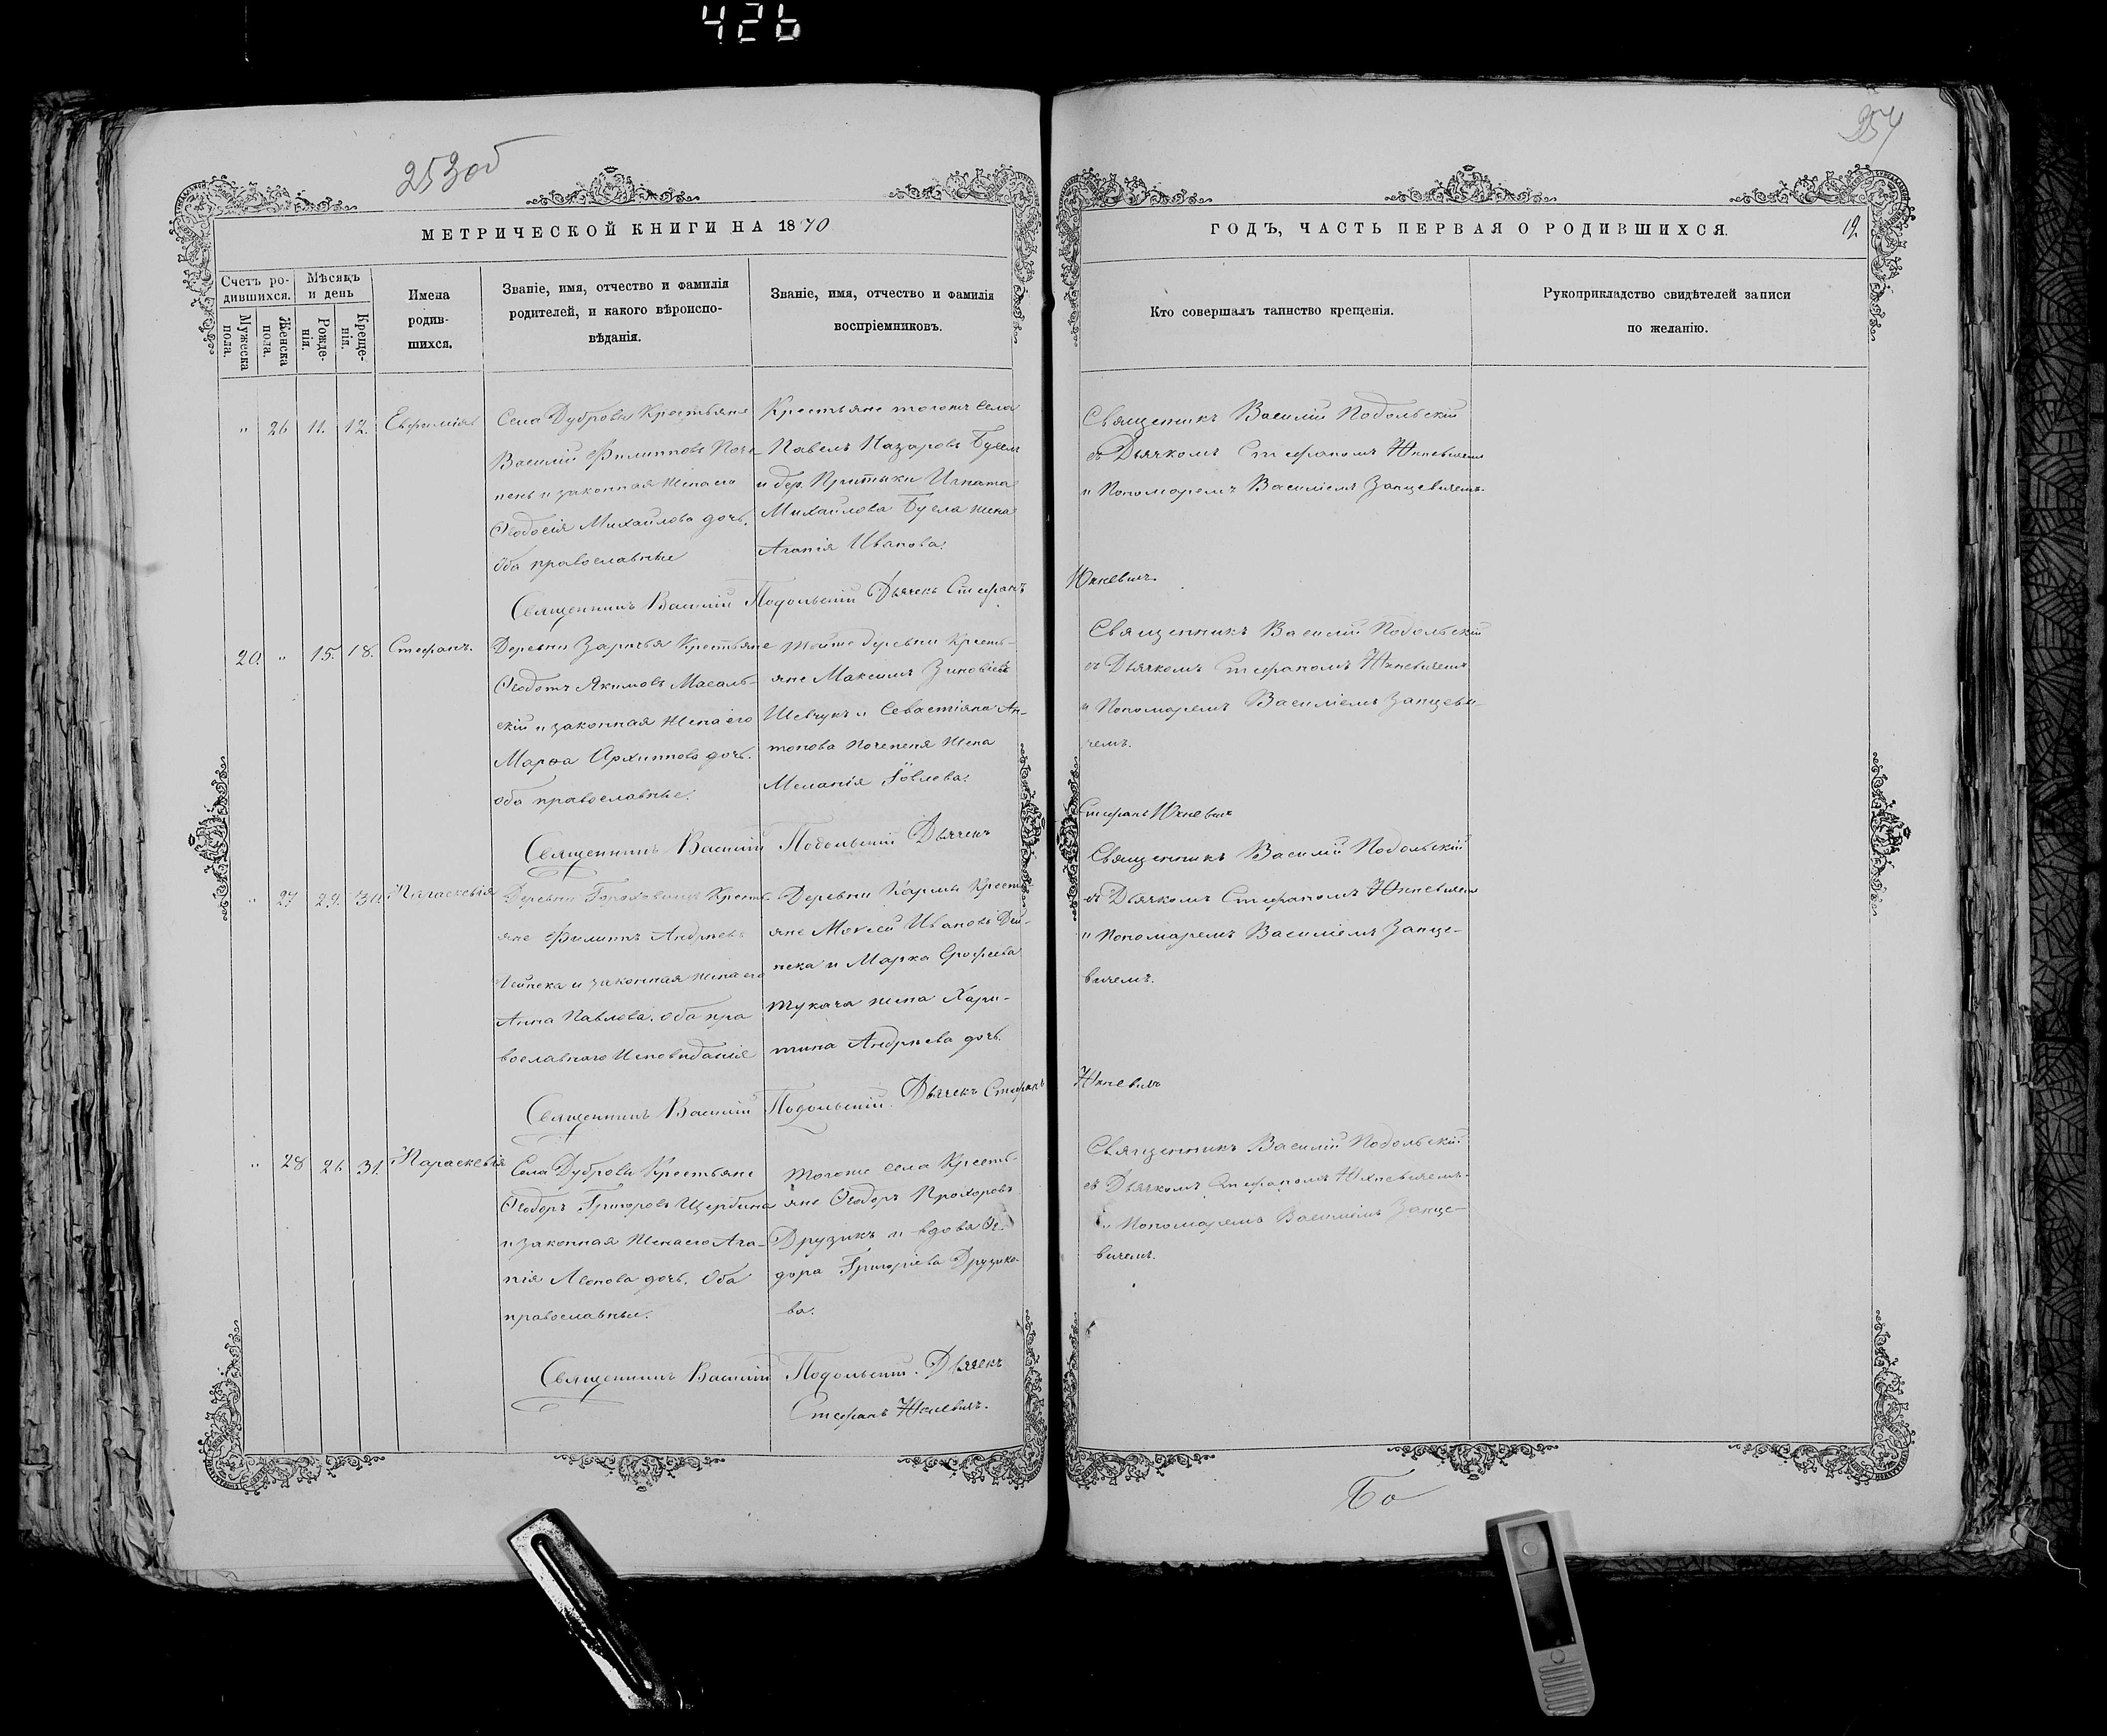 426
253 об
254
МЕТРИЧЕСКОЙ КНИГИ НА 1870
ГОДЪ, ЧАСТЬ ПЕРВАЯ О РОДИВШИХСЯ.
19.
Счетъ ро-
дившихся.
Мѣсяцъ
и день
Мужеска
пола.
Женска
пола.
Рожде-
нія.
Креще-
нія.
Имена
родив-
шихся.
Званіе, имя, отчество и фамилія
родителей, и какого вѣроиспо-
вѣданія.
Званіе, имя, отчество и фамилія
воспріемниковъ.
Кто совершалъ таинство крещенія.
Рукоприкладство свидѣтелей записи
по желанію.
" 26 11. 12. Евфимія
Села Дубровы Крестьяне
Василій Филипповъ Поче-
пень и законная жена его
Ѳеодосія Михайлова дочь.
Оба православные
Крестьяне тогожъ села
Павелъ Назаровъ Бусел
и дер. Притыки Игната
Михайлова Бусла жена
Агапія Иванова.
Священникъ Василій Подольскій
съ Дьячкомъ Стефаномъ Юхневичемъ
и Пономаремъ Василіемъ Занцевичемъ.
Священникъ Василій Подольскій Дьячекъ Стефанъ
Юхневичъ.
20. " 15. 18. Стефанъ.
Деревни Зарѣчья Крестьяне
Ѳеодотъ Якимовъ Масаль-
скій и законная жена его
Марѳа Архиппова дочь.
оба православные.
Тойже деревни Кресть-
яне Максимъ Зиновіевъ
Шевчукъ и Севастіяна Ан-
тонова Почепеня жена
Меланія Іовлева.
Священникъ Василій Подольскій
съ Дьячкомъ Стефаномъ Юхневичемъ
и Пономаремъ Василіемъ Занцеви-
чемъ.
Священникъ Василій Подольскій Дьячекъ
Стефанъ Юхневичъ
" 27 29. 30. Параскевія
Деревни Крестъ-
яне Филиппъ Андреевъ
Дейнека и законная жена его
Анна Павлова. Оба пра
вославнаго Исповѣданія
Деревни Кармы Кресть-
яне Моисей Ивановъ Дей-
нека и Марка Ерофеева
Тукача жена Хари-
тина Андреева дочь.
Священникъ Василій Подольскій
съ Дьячкомъ Стефаномъ Юхневичемъ
и Пономаремъ Василіемъ Занце-
вичемъ.
Священникъ Василій Подольскій. Дьячекъ Стефанъ
Юхневичъ
" 28 26 31. Параскевія
Села Дубровы Крестьяне
Ѳеодоръ Григоровъ Щербина
и законная жена его Ага-
пія Леонова дочь. Оба
православные.
Тогоже села Кресть-
яне Ѳеодоръ Прохоровъ
Друзикъ и вдова Ѳе-
дора Григоріева Друзико-
ва.
Священникъ Василій Подольскій
съ Дьячкомъ Стефаномъ Юхневичемъ.
и Пономаремъ Василіемъ Занце-
вичемъ.
Священникъ Василій Подольскій. Дьячекъ
Стефанъ Юхневичъ.